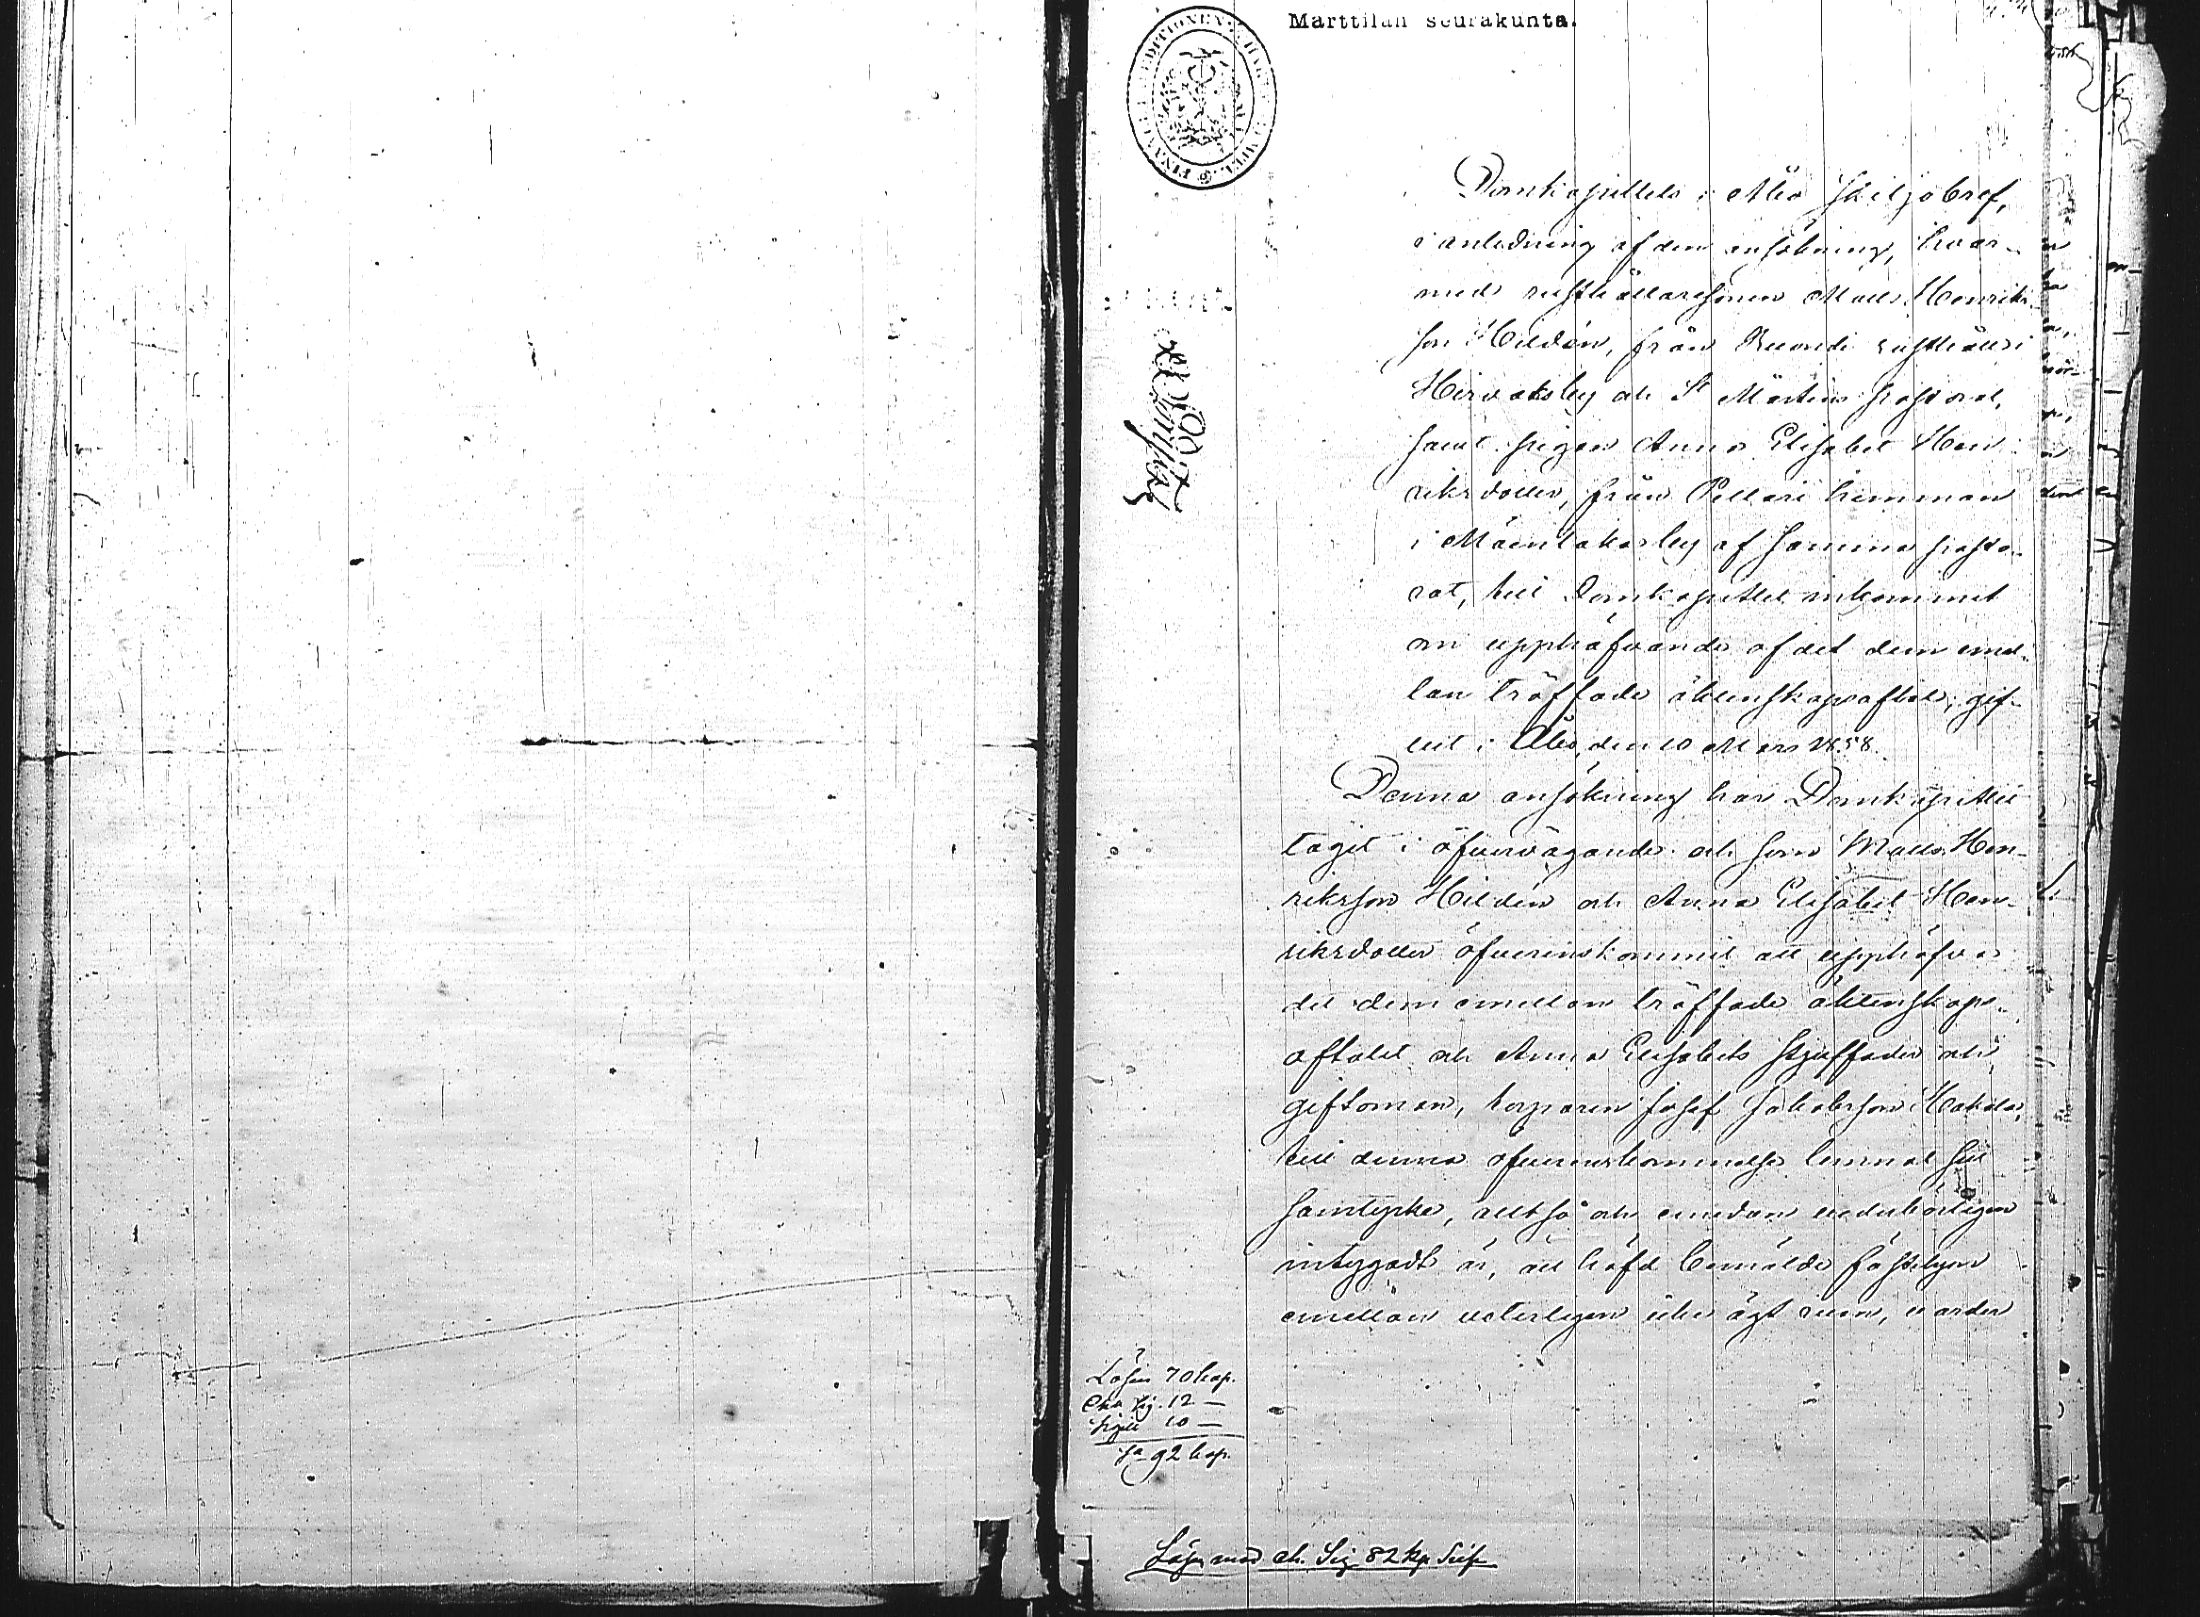 Marttilan seurakunta.
Domkapitlets i Åbo skiljobref,
i anledning af den ansökning, hvar-
med rusthållaresonen Matts Henriks-
son Hildén, från rusthåll i
Hirvoisby och St Mårtens pastorat,
samt pigan Anna Elisabet Hen-
riksdotter, från Pellari hemman
i by af samma pasto-
rat, till Domkapitlet inkommit
om upphäfvande af det dem emel-
lan träffade äktenskapsaftal; gif-
vit i Åbo, den 10 Mars 1858.
Denna ansökning har Domkapitlet
tagit i öfvervägande och som Matts Hen-
riksson Hildén och Anna Elisabet Hen-
riksdotter öfverenskommit att upphäfva
det dem emellan träffade äktenskaps-
aftalet och Anna Elisabets styffader och
giftoman, torparen Josef Jakobsson
till denna öfverenskommelse lemnat sitt
samtycke, alltså och emedan vederbörligen
intygadt är, att häfd bemälde fästehjon
emellan veterligen icke ägt rum, varder
Lösen 70 kop.
Exp sig. 12 —
Sigill 10 —
Sa 92 kop.
Lösen med ch. Sig 82 kp Silf